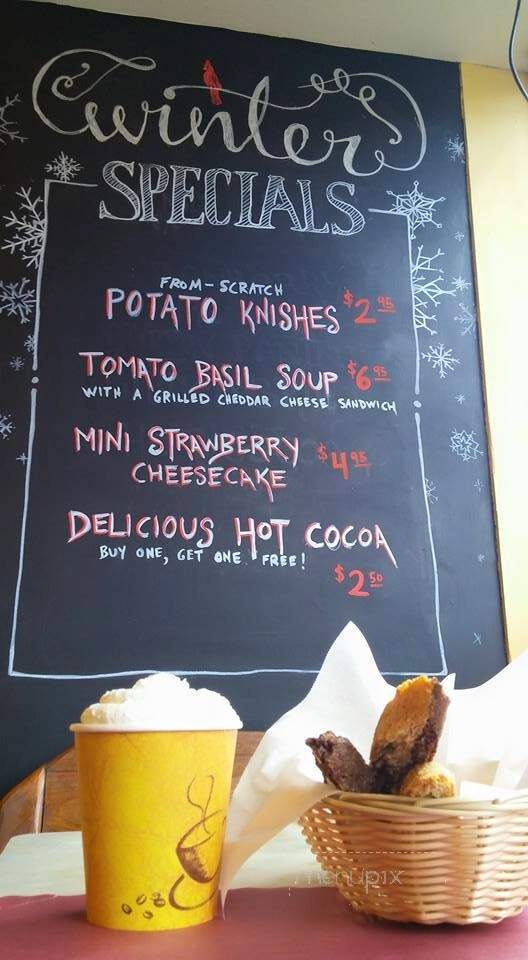 winter
SPECIALS
FROM-SCRATCH
POTATO KNISHES $2 95
TOMATO BASIL SOUP $6 95
WITH A GRILLED CHEDDAR CHEESE SANDWICH
MINI STRAWBERRY $4 95
CHEESECAKE
DELICIOUS HOT COCOA
BUY ONE, GET ONE FREE!
$2 50
menupix